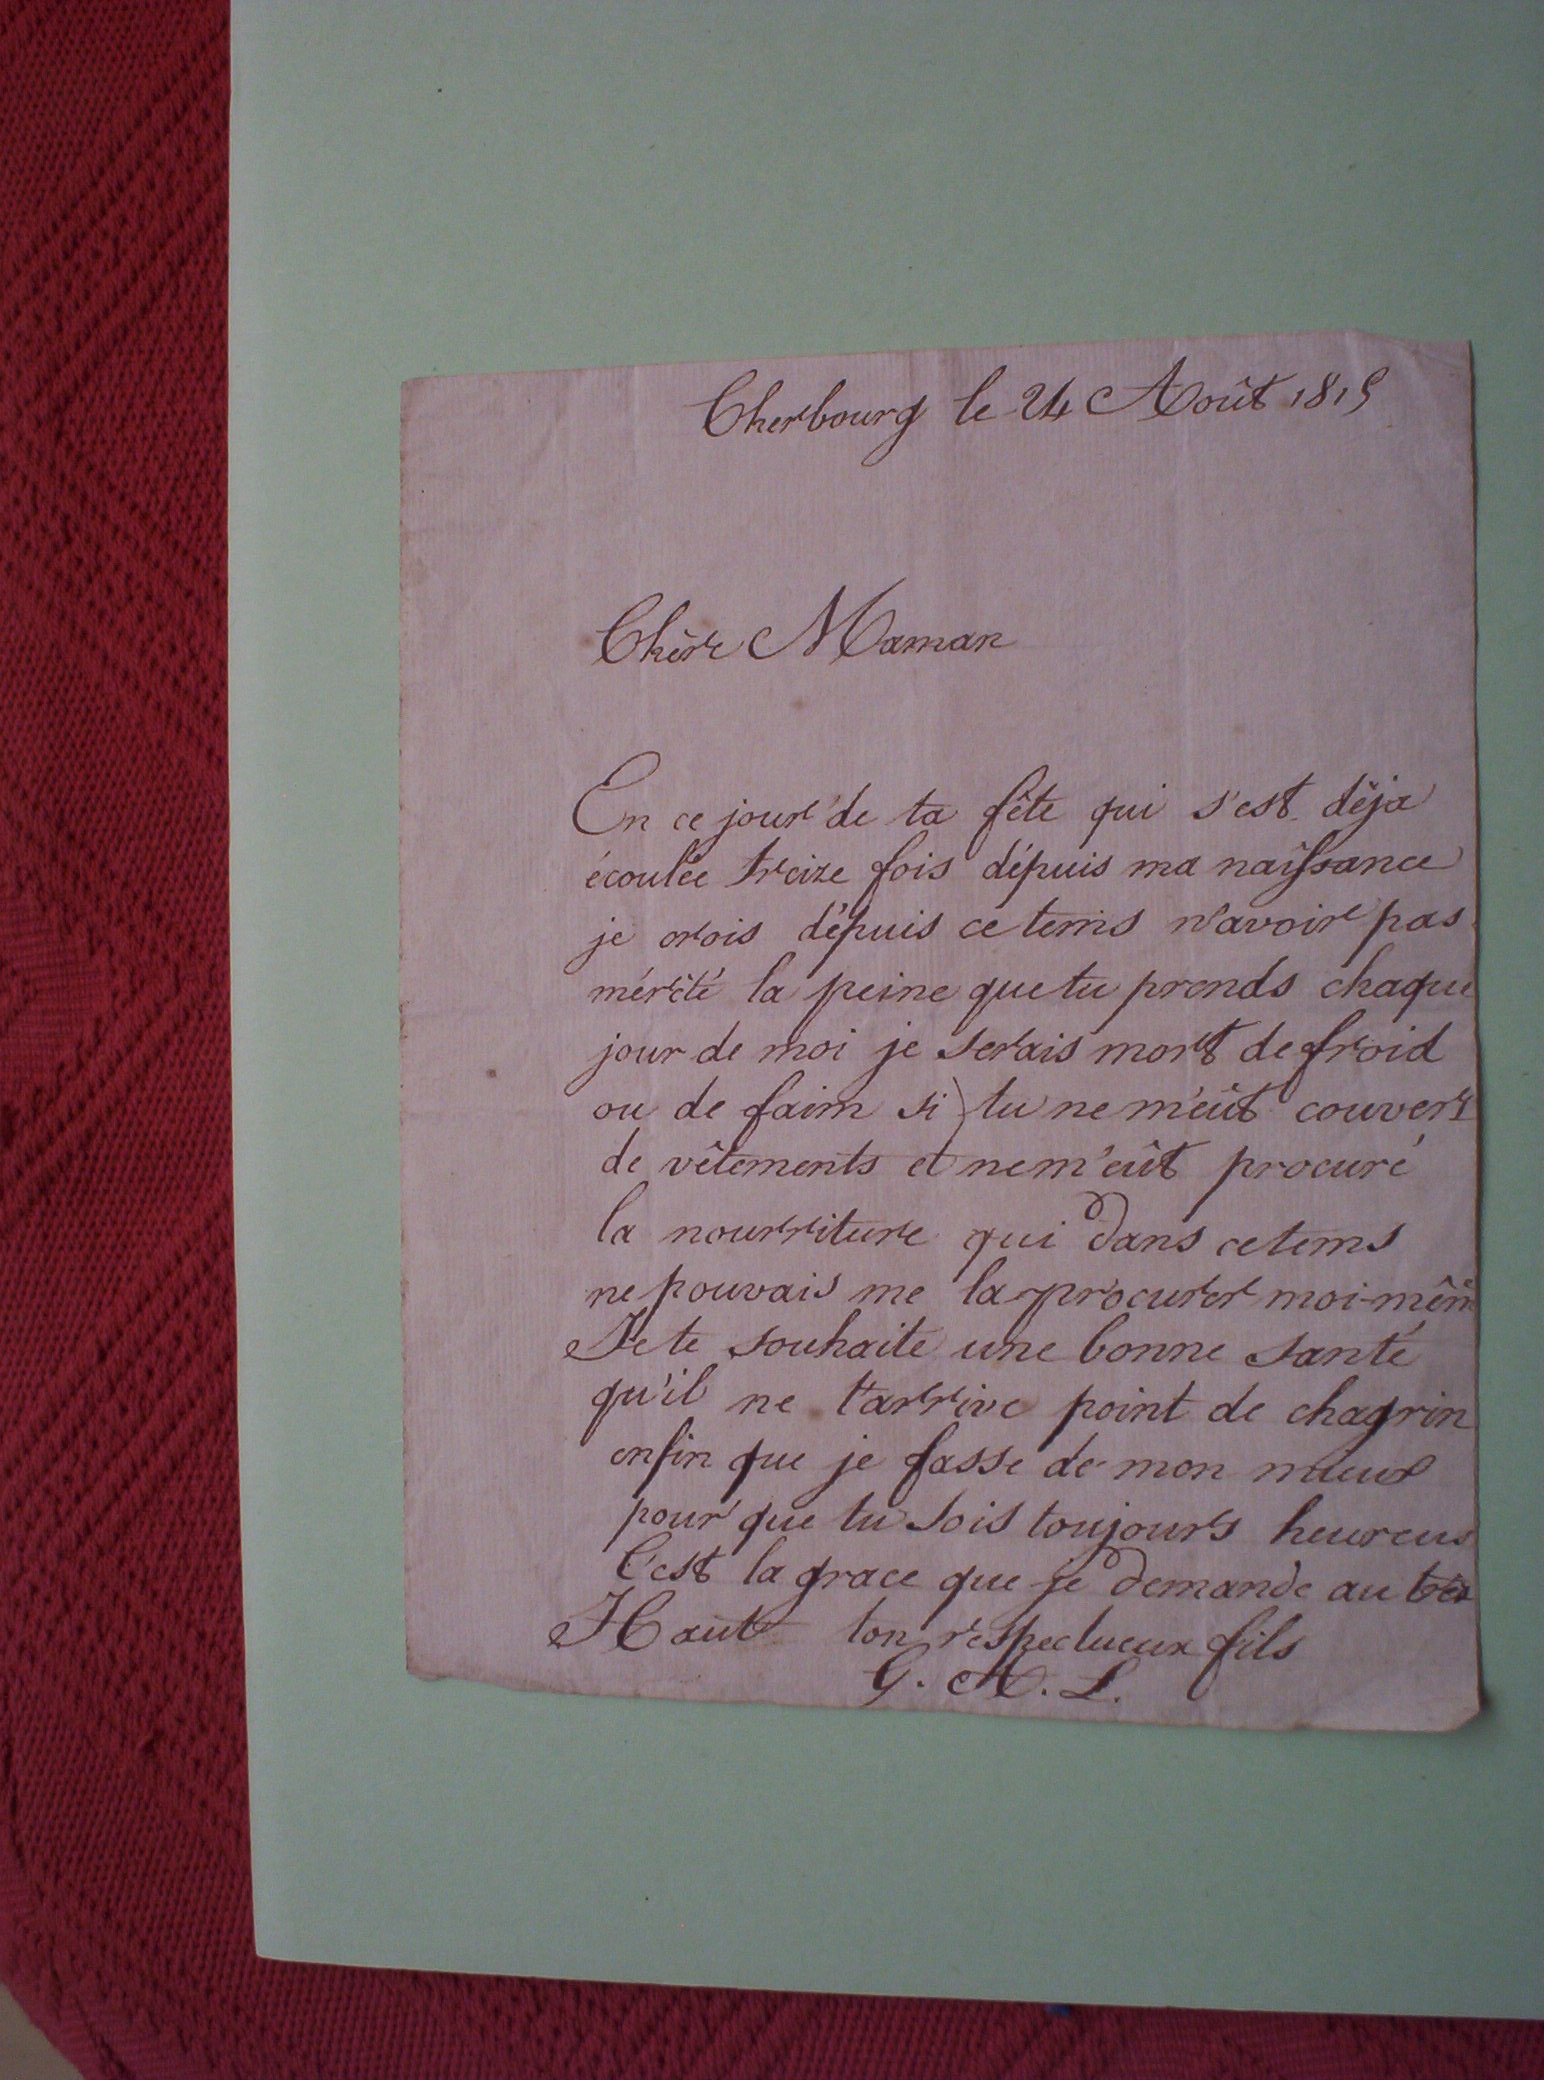 Cherbourg le 24 Août 1815
Chère Maman
En ce jour de ta fête qui s'est déja
écoulée treize fois dépuis ma naissance
je crois dépuis ce tems n'avoir pas
mérité la peine que tu prends chaque
jour de moi je serais mort de froid
ou de faim si tu ne m'eût couvert
de vêtements et ne m'eût procuré
la nourriture qui dans ce tems
ne pouvais me la procurer moi-mêm
Je te souhaite une bonne santé
qu'il ne t'arrive point de chagrin
enfin que je fasse de mon mieux
pour que tu sois toujours heureus
C'est la grace que je demande au très
Haut ton respectueux fils
G. A. L.